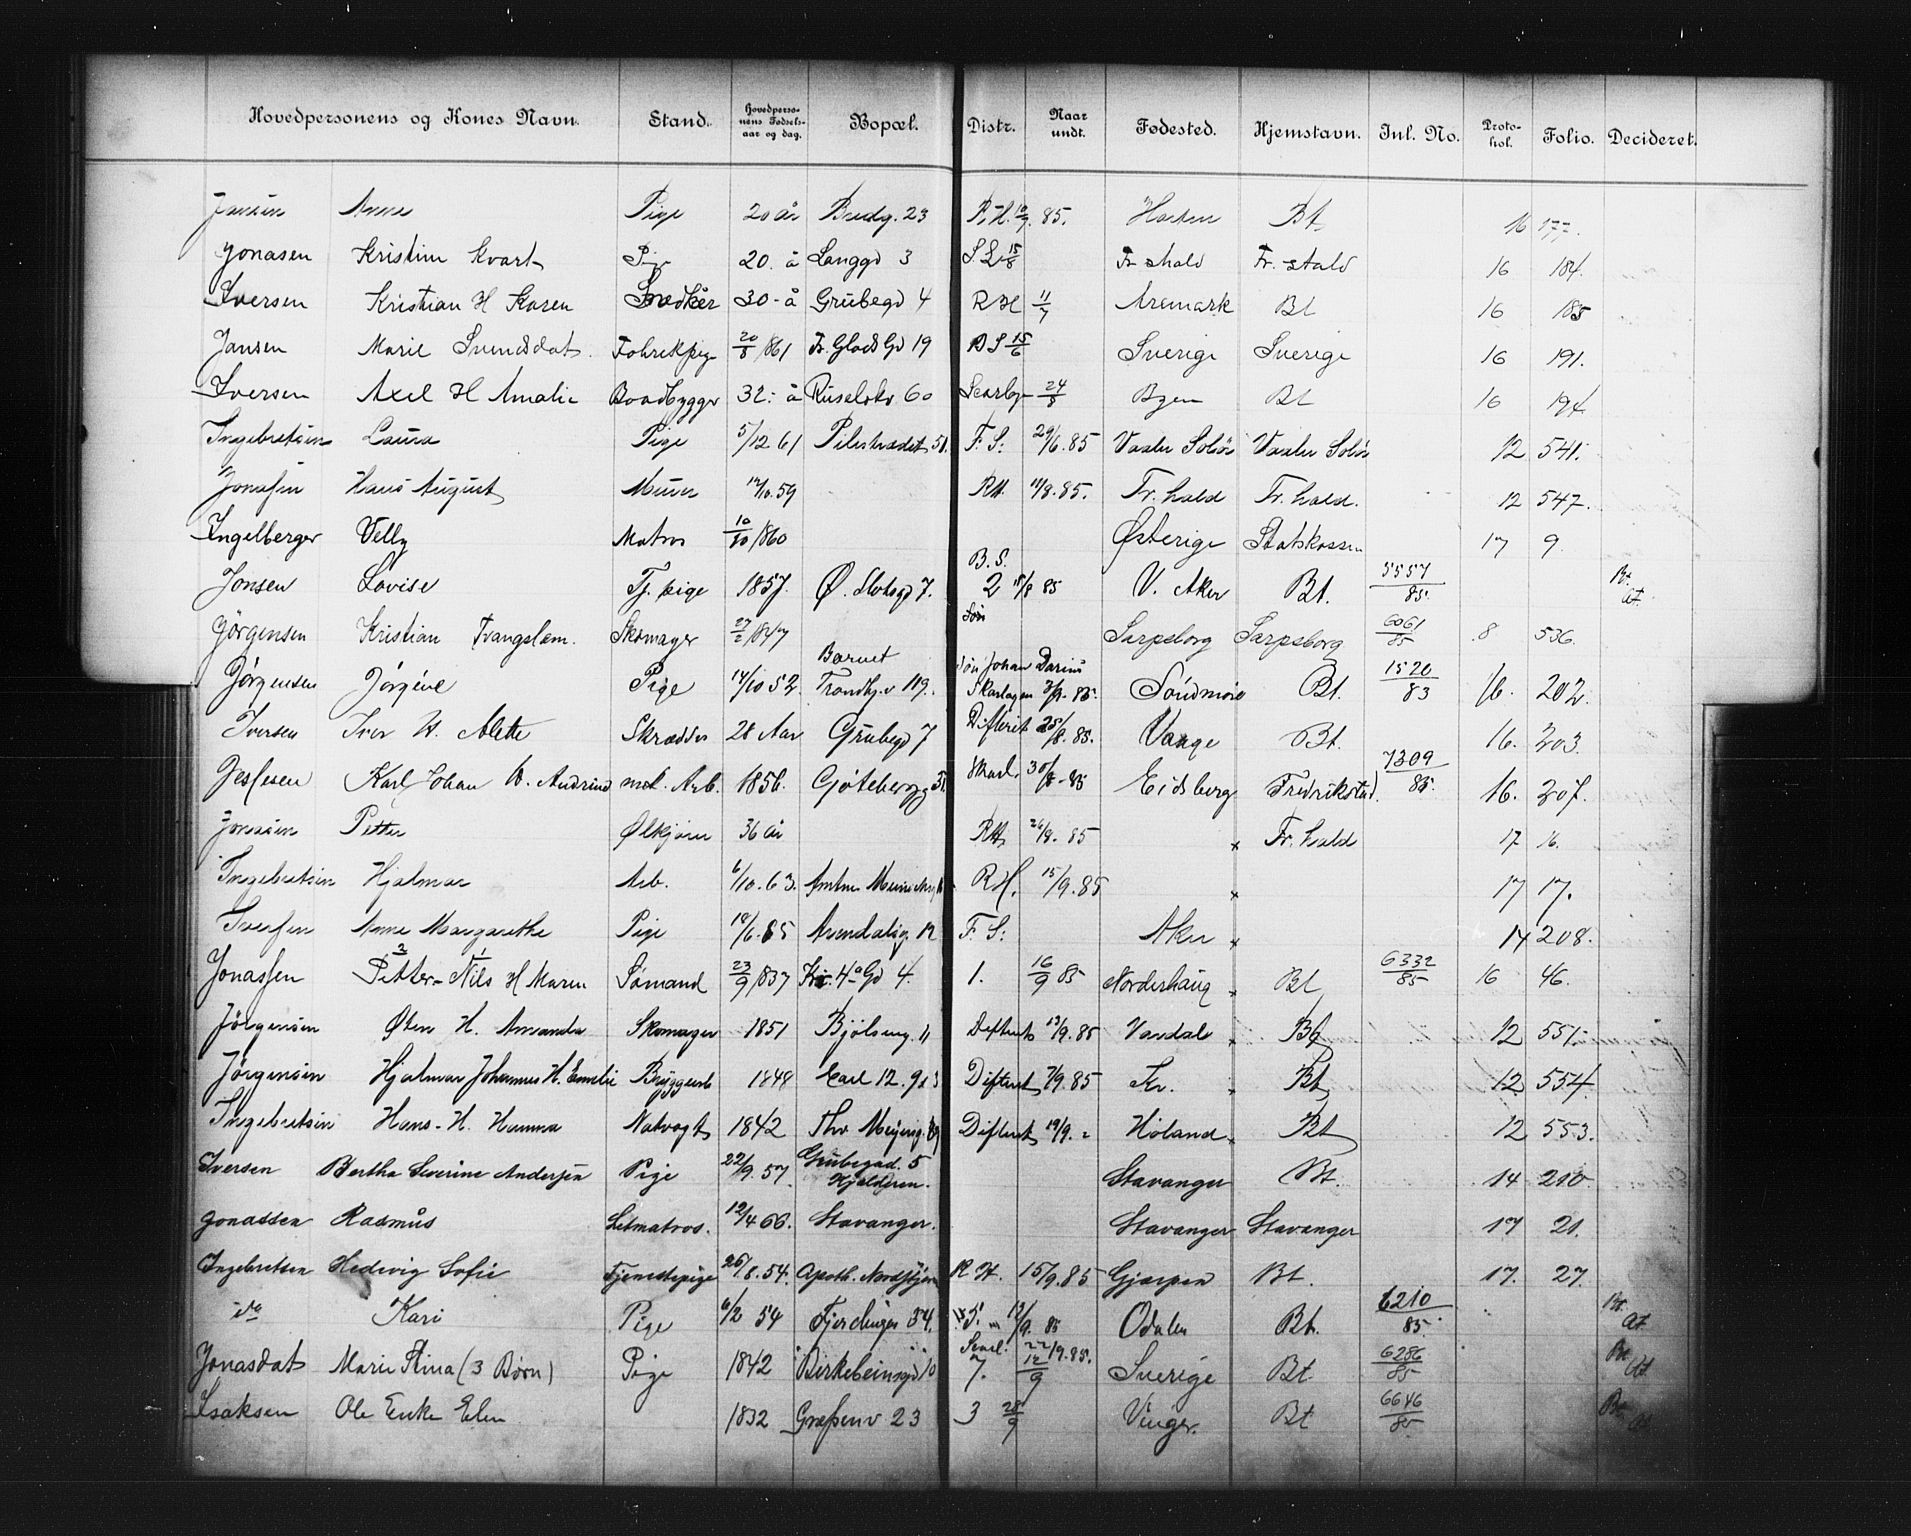 Hovedpersonens og Kones Navn. Stand. Hovedpersonens Fødselsaar og dag. Bopæl. Distr. Naar undt. Fødested. Hjemstavn. Inl. No. Protokol. Folio. Decideret.
Jansen Anne Pige 20 år Bredg. 23 R.H. 10/9. 85. Horten Bt 16 177.
Jonasen Kristine Kvart Pige 20. å Langgd 3 15/8 Fr. Hald Fr. Hald 16 184.
Iversen Kristian H Karen Snedker 30- å Grubegd 4 RH 11/7 Aremark Bt 16 185
Jansen Marie Svendsdat. Fabrikpige 20/8 /861 Fr. Glads Gd 19 15/6 Sverige Sverige 16 191.
Iversen Axel H Amalie Baadbygger 32- å Ruseløkv 60 24/8 Byen Bt 16 194
Ingebretsen Laura Pige 5/12 61 Pilestrædet 51. F. S: 29/6. 85 Vaaler Solør Vaaler Solør 12 541.
Jonasen Hans August Murer 12/10. 59 RH. 11/8. 85. Fr. hald Fr. hald. 12 547.
Ingelberger Velly Matros 10/10 /860 Østerige Statskassen 17 9.
Jonsen Lovise Tj. pige 1857. Ø. Slotsgd 7. B. S. 2 18/8 85 V. Aker Bt. 5557/85. Bt. At.
Jørgensen Kristian Trangslem. Skomager 27/2 /847 Sarpsborg Sarpsborg 6061/85 8 536.
Jørgensen Jörgine Pige 14/10 52. Barnet Trondhj.v 119. Søn Johan Darius Skarlagen 3/9. 85. Söndmöre Bt. 1520/83 16. 202.
Iversen Iver H. Alette Skrædder 28 Aar Grubegd 7 Difterit 25/8. 85. Vange Bt. 16. 203.
Jessesen Karl Johan H. Andrine mek. Arb. 1856. Gøteborgg 30/8-85 Eidsberg Fredrikstad. 7309/85. 16. 207.
Jonasen Petter Ølkjører 36 år RH 26/8. 85 x Fr. hald 17 16.
Ingebretsen Hjalmar Arb. 6/10. 63. R.H. 15/9. 85 x 17 17.
Iversen Anne Margarethe Pige 18/6. 65 Arendalsg. 12 F. S: Aker x 14 208.
Jonassen Petter Nils H Maren Sømand 23/9 /837 4 Gd 4. 1. 16/9 85 Norderhaug Bt 6332/85 16 46.
Jørgensen Øten H. Amanda Skomager 1851 Bjölseng. 11 Difterit 13/9. 85 Vardal Bt 12 551.
Jørgensen Hjalmar Johannes H. Emelie Bryggearb 1848 Difterit 7/9. 85 Kr. Bt 12 554.
Ingebretsen Hans H. Hanna Natvagt 1842 Thv Meyersg. Difterit 19/9. Høland Bt 12 553.
Iversen Bertha Severine Andersen Pige 22/9. 57. Grubegad. 5 Kjælderen. Stavanger Bt. 14 210.
Jonassen Rasmus Letmatros. 12/4 66. Stavanger. Stavanger Stavanger 17 21.
Ingebretsen Hedevig Sofie Tjenestepige 26/8. 54. Apoth. R H. 15/9. 85 Gjerpen Bt. 17. 27.
do Kari Pige 6/2 54 Fjerdingen 34. S. 13/9. 85 Odalen Bt. 6210/85 Bt. At.
Jonasdat Marie Stina (3 Børn) Pige 1842 Birkebeinergd 10 7. 12/9 22/9. 85. Sverige Bt. 6286/85 Bt At
Isaksen Ole Enke Elen 1832 Grefsenv 23 3 28/9 Vinger. Bt 6646/85 Bt At